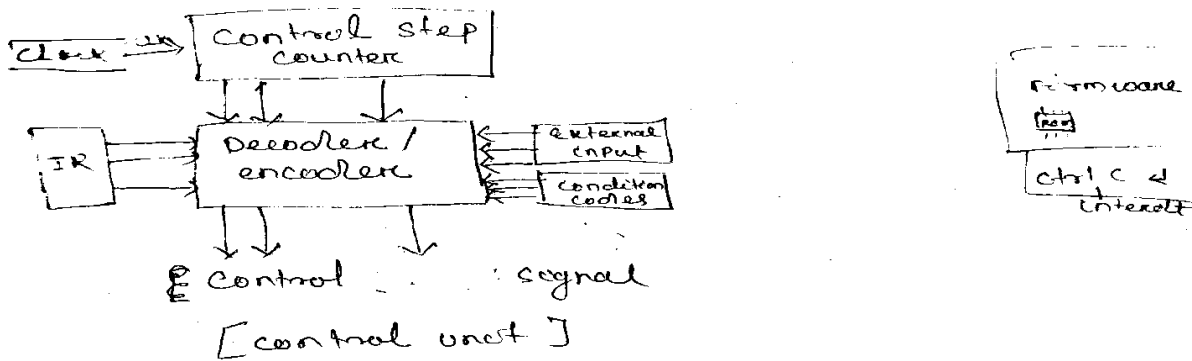 Clock
control step
counter
IR
Decoder /
encoder
external
input
condition
codes
control signal
[control unit]
Firmware
ROM
ctrl C